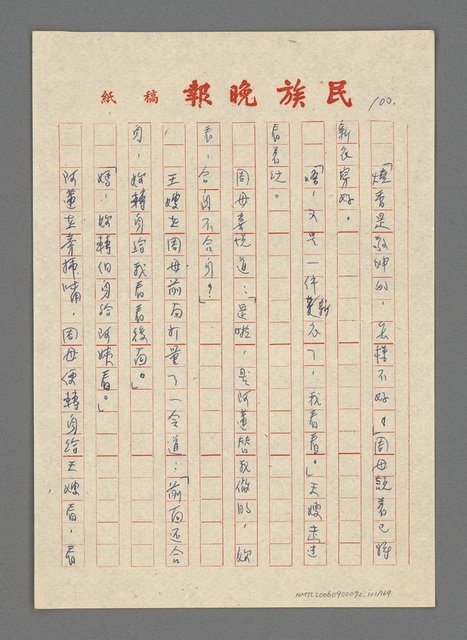 民族晚報 稿紙
100.
「燒香是敬神的,怎樣不好?」周母說着已將
新衣穿好。
「唔,又是一件新衣了,我看看。」王嫂走過
看着說。
周母喜悅道:「是啦,是阿蓮替我做的,妳
看,合身不合身?」
王嫂在周母前面打量了一会道:「前面还合
身,妳轉身給我看看後面。」
「媽,妳轉個身給阿姨看。」
阿蓮在旁插嘴,周母便轉身給王嫂看,看
NMTL20060900092, 101/169